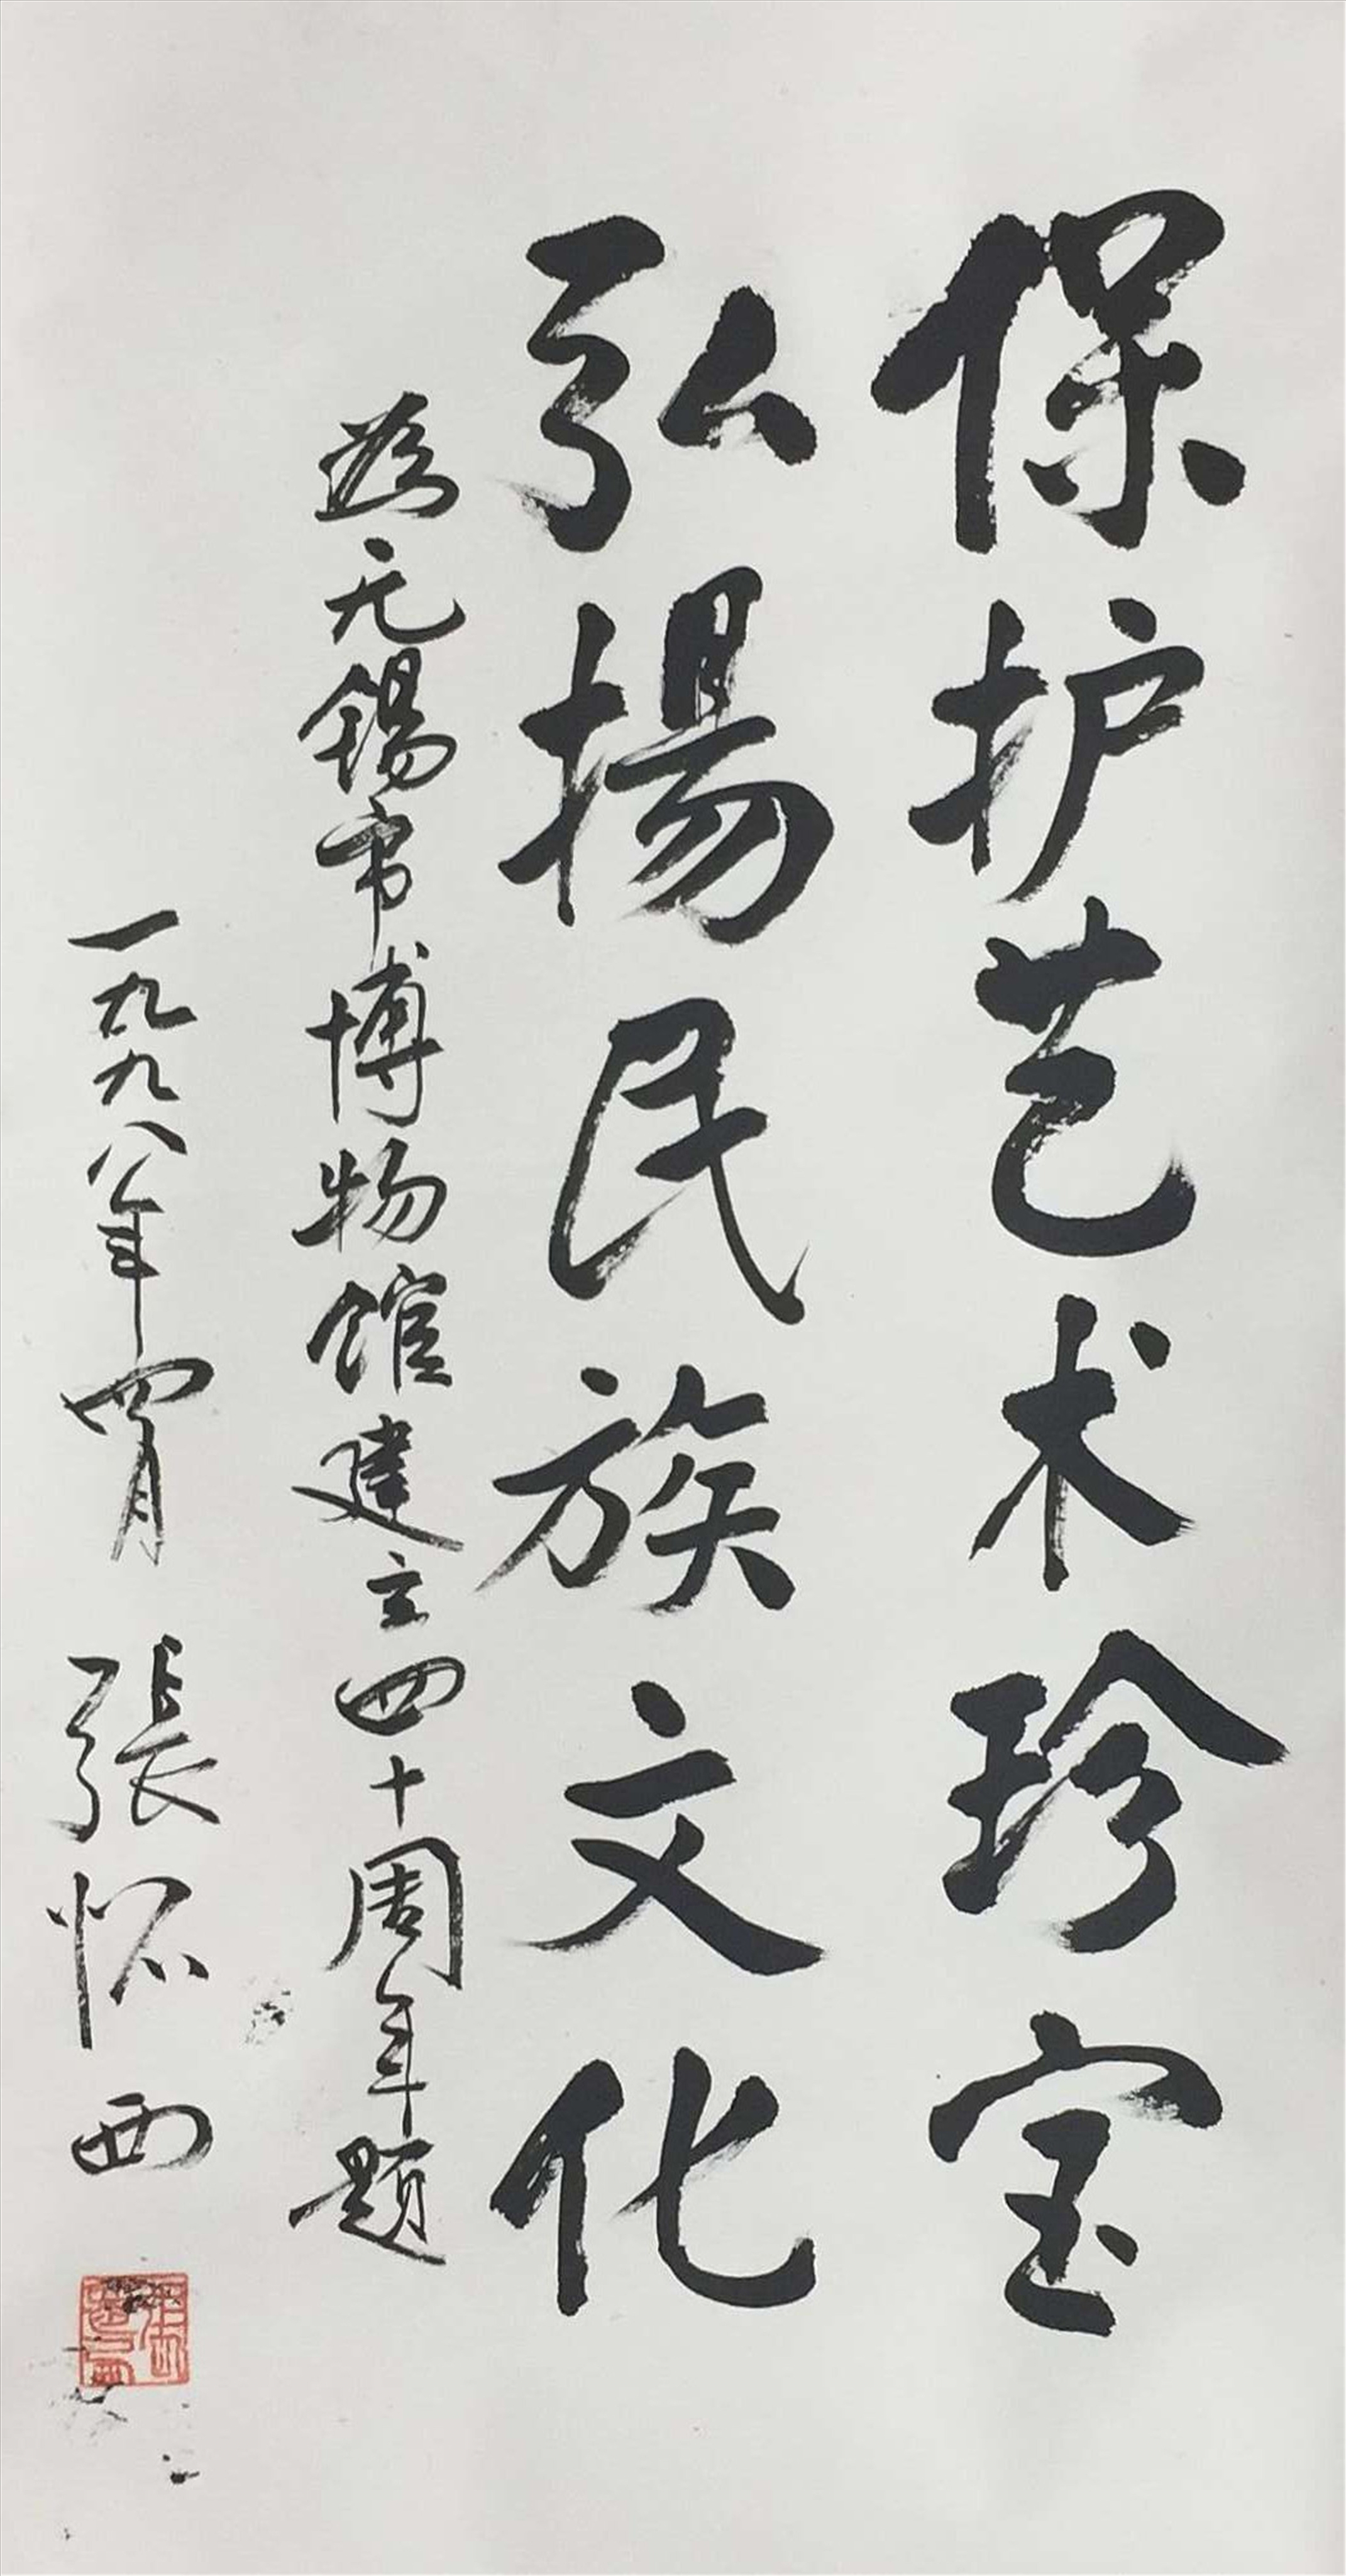 保护艺术珍宝
弘揚民族文化
為无锡市博物馆建立四十周年题
一九九八年四月 張怀西